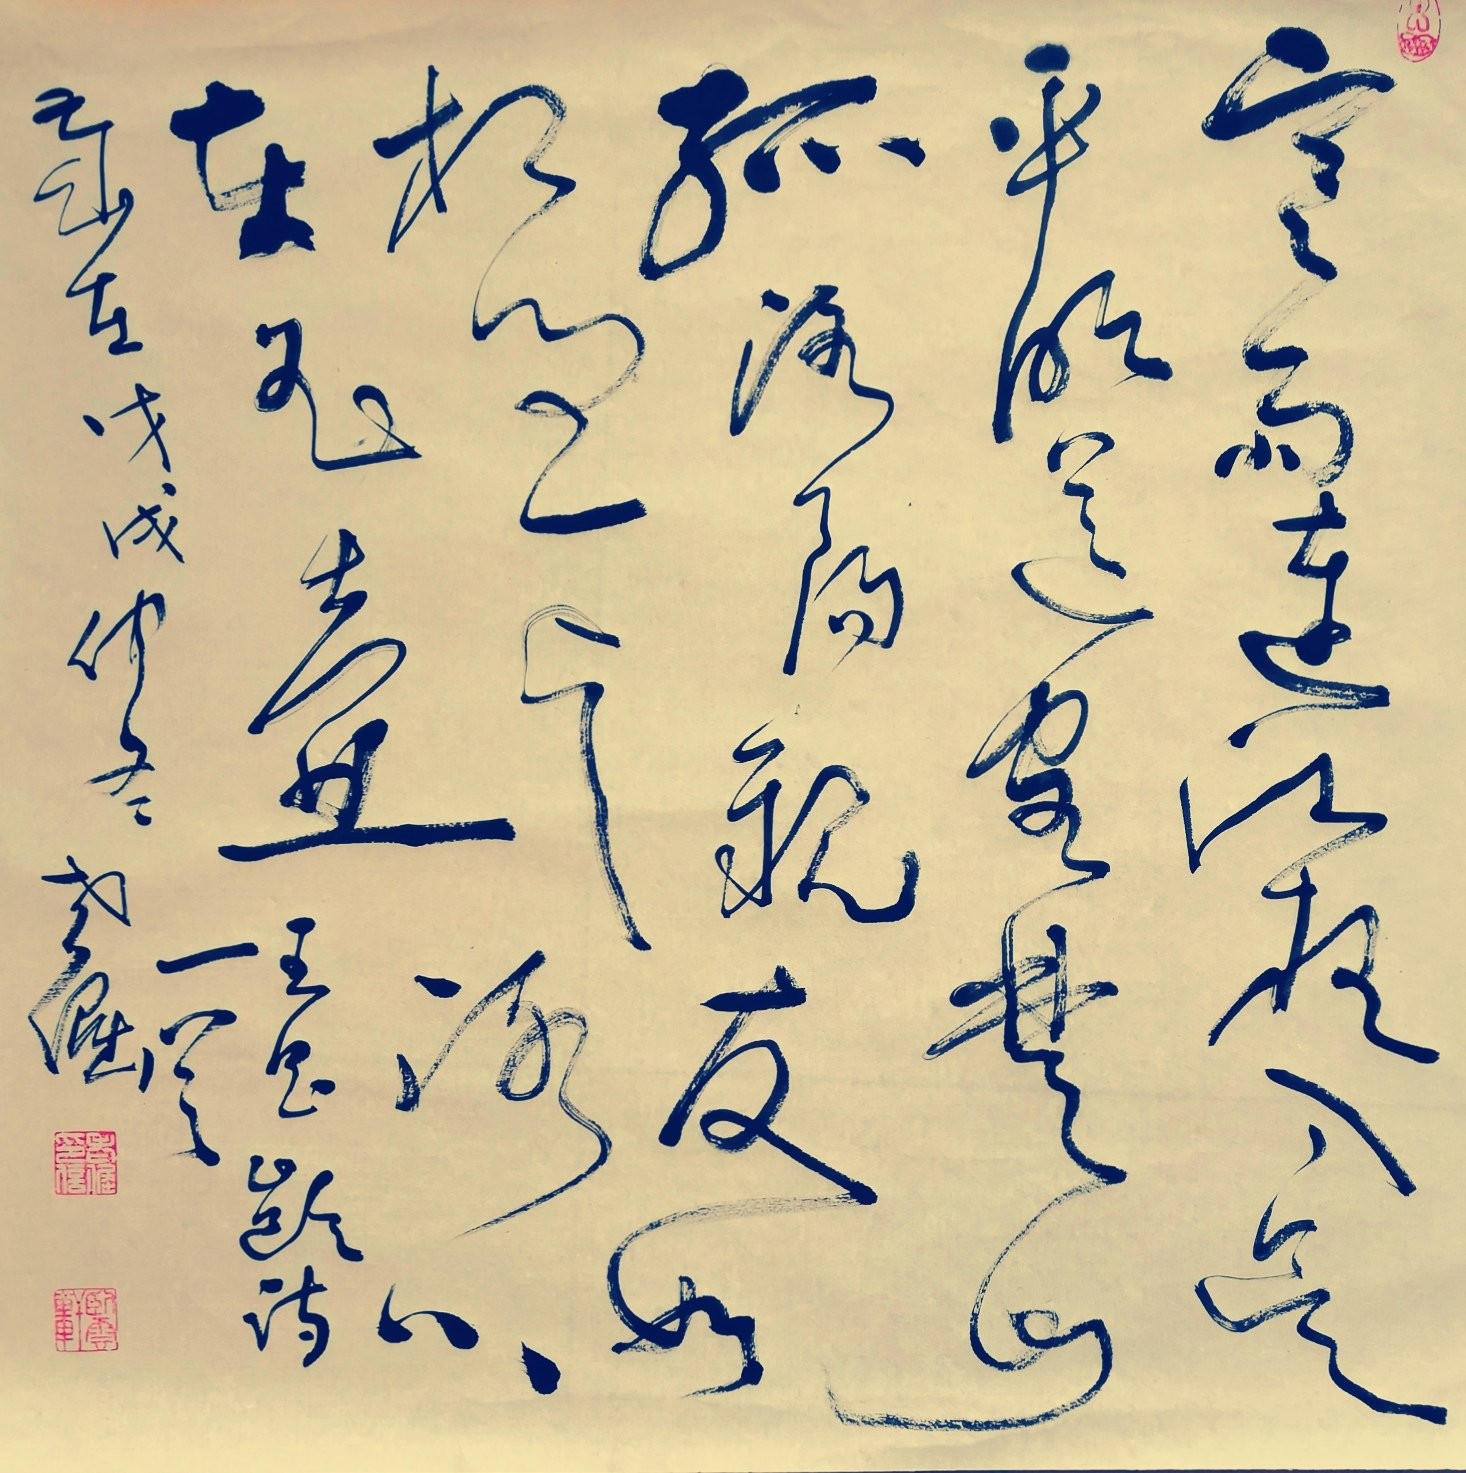 寒雨连江夜入吴
平明送客楚山
孤洛阳亲友如
相问一片冰心
在玉壶 王昌龄诗
一首
岁在戊戌仲冬